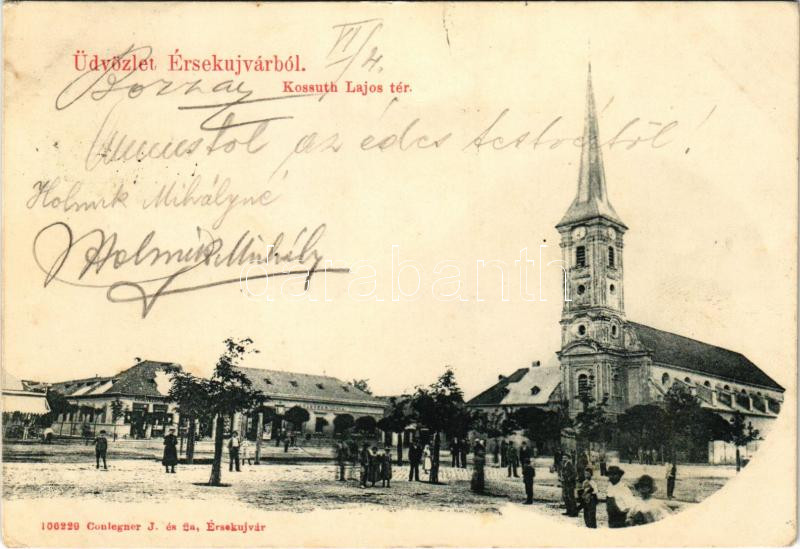 Üdvözlet Érsekujvárból.
VI/4.
Kossuth Lajos tér.
az édes testvértől!
Holmik Mihályné
Holmik Mihály
darabanth
106229 Conlegner J. és fia, Érsekujvár